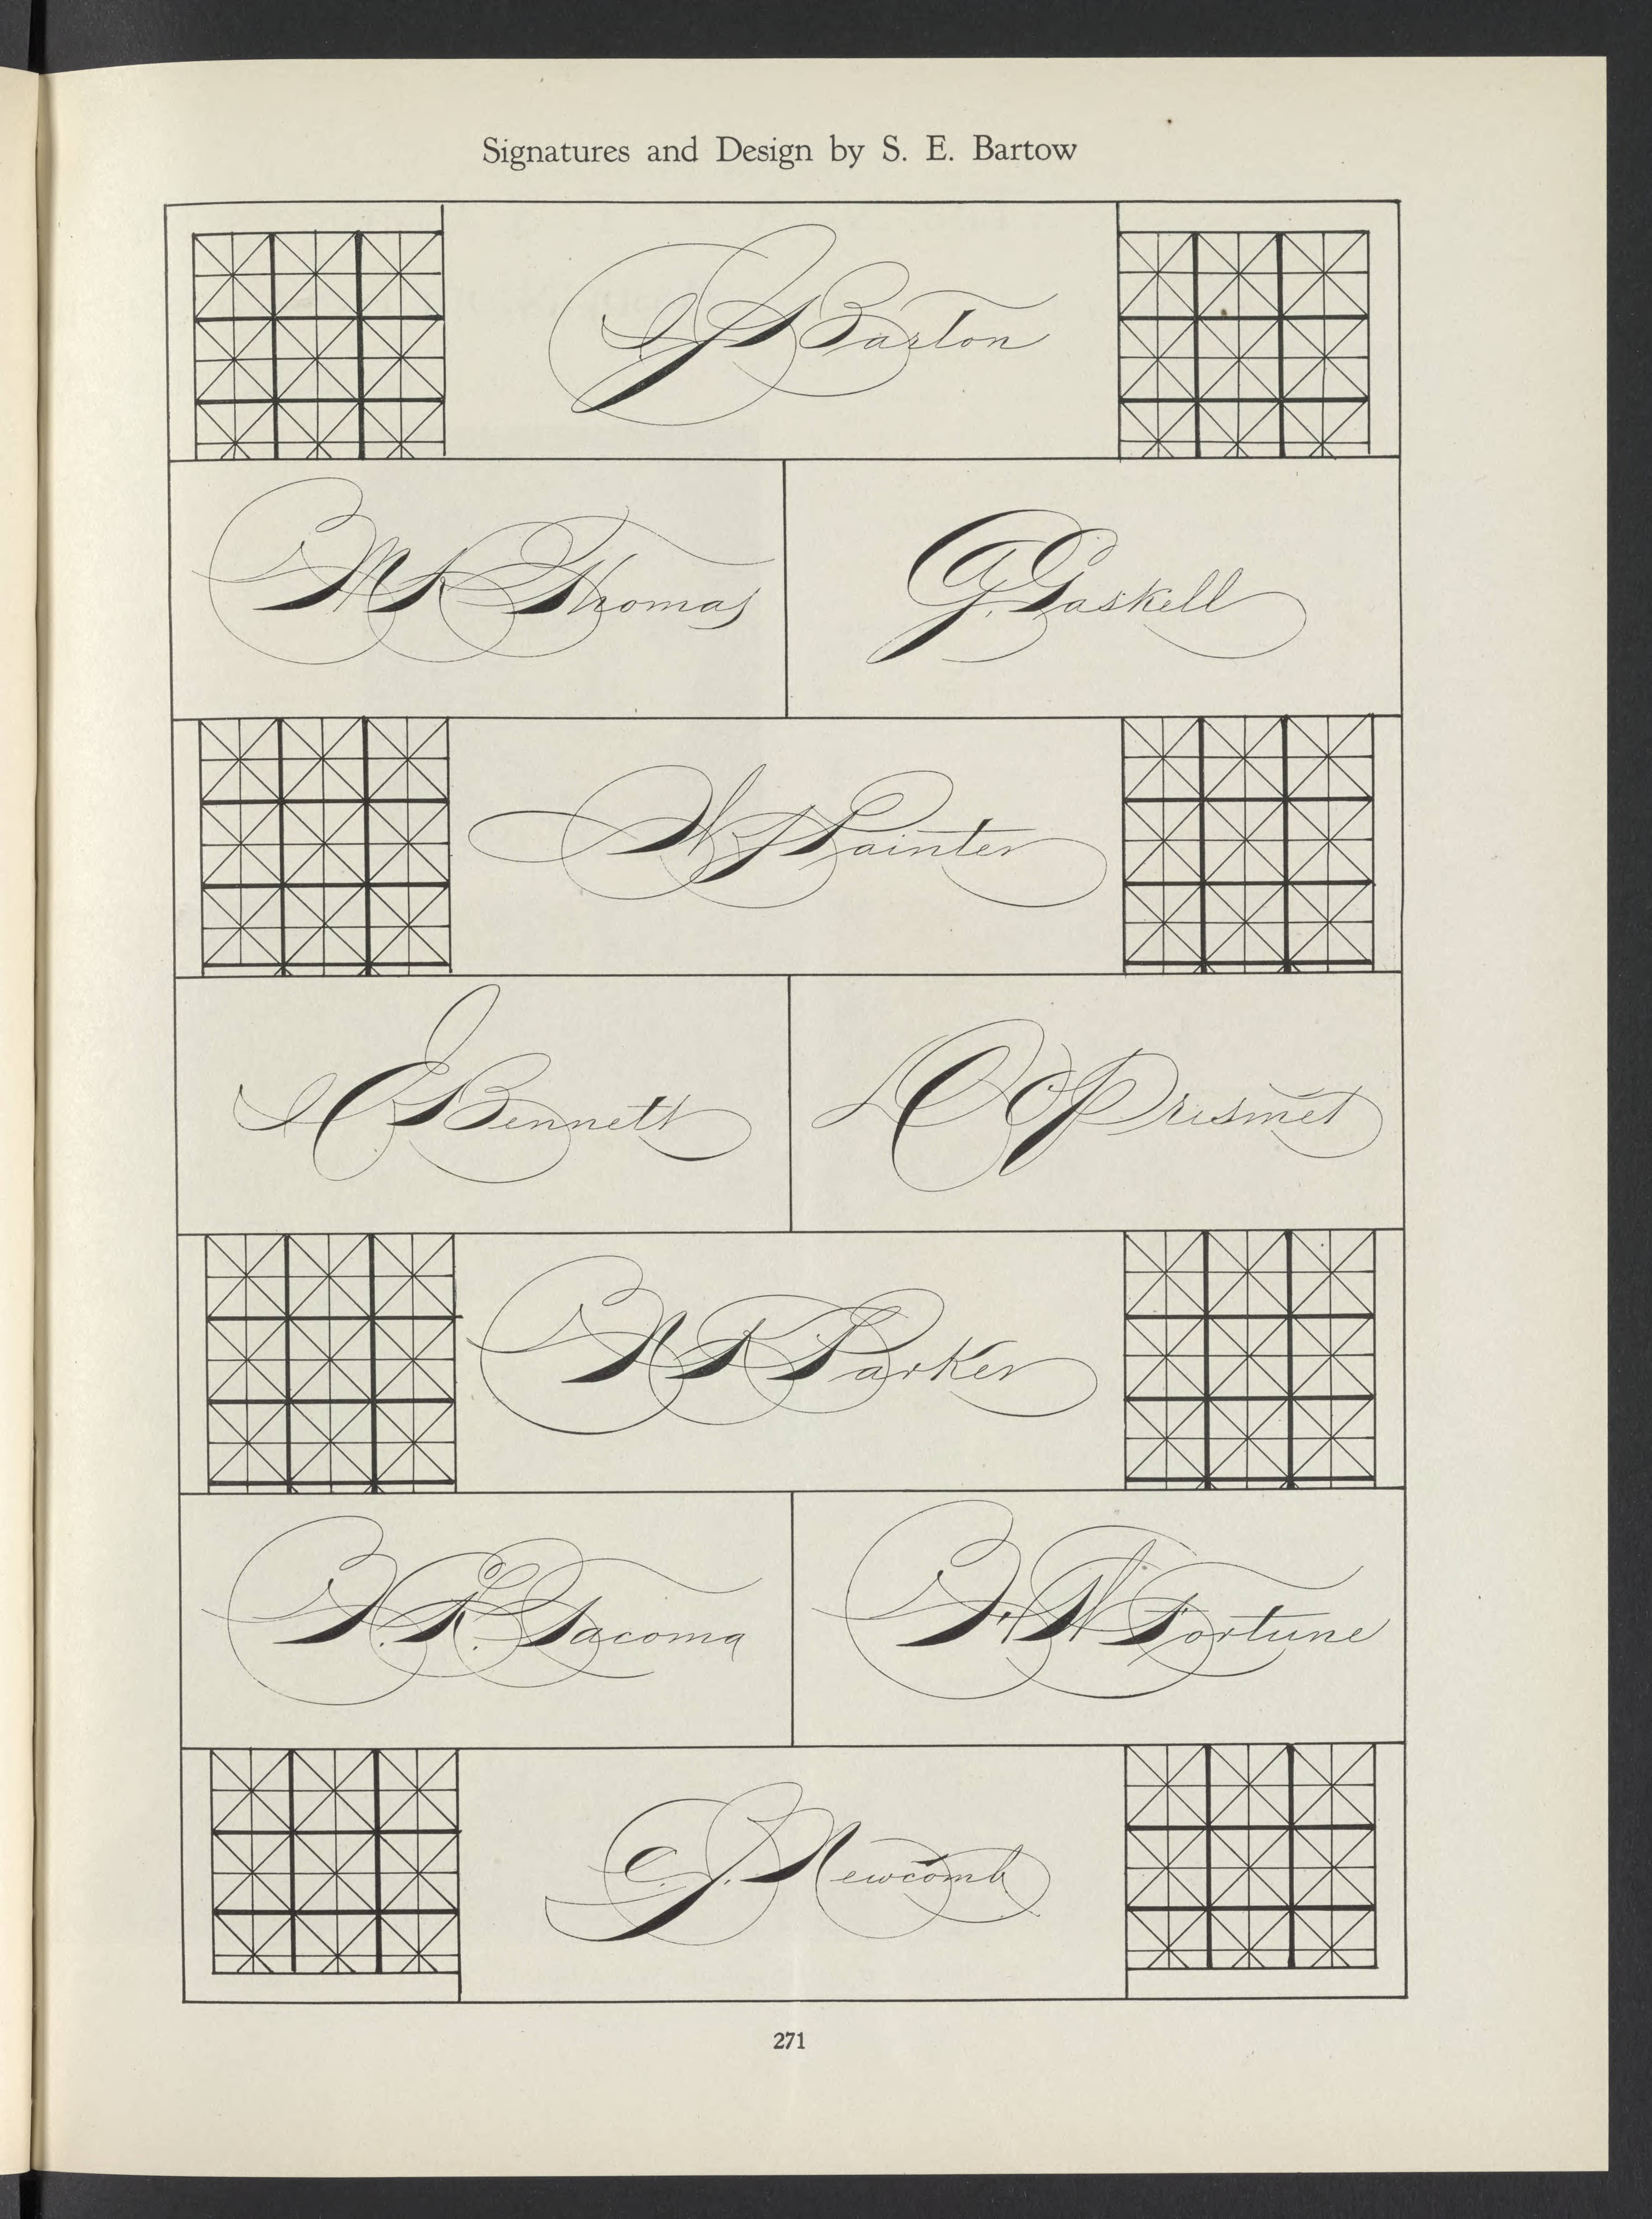 Signatures and Design by S. E. Bartow
Barton
M K Thomas
G. Gaskell
W J Painter
Bennett
Prismet
N T Parker
Tacoma
Fortune
C. J. Newcomb
271